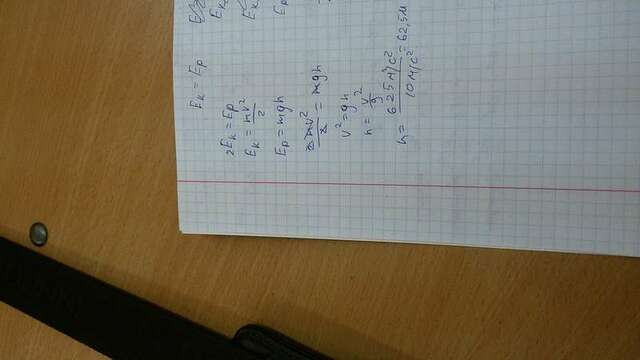 Eₖ = Eₚ
2Eₖ = Eₚ
Eₖ = mv²/2
Eₚ = mgh
2mv²/2 = mgh
v² = gh
h = v²/g
h = 625 м²/с² / 10 м/с² = 62,5 м